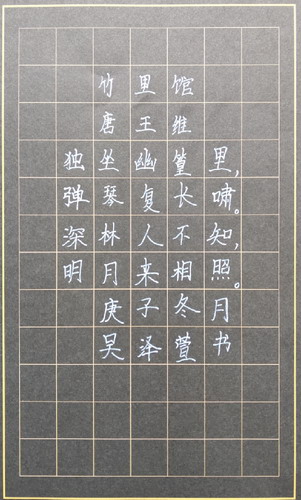 竹里馆
唐王维
独坐幽篁里，
弹琴复长啸。
深林人不知，
明月来相照。
庚子冬月
吴泽萱书